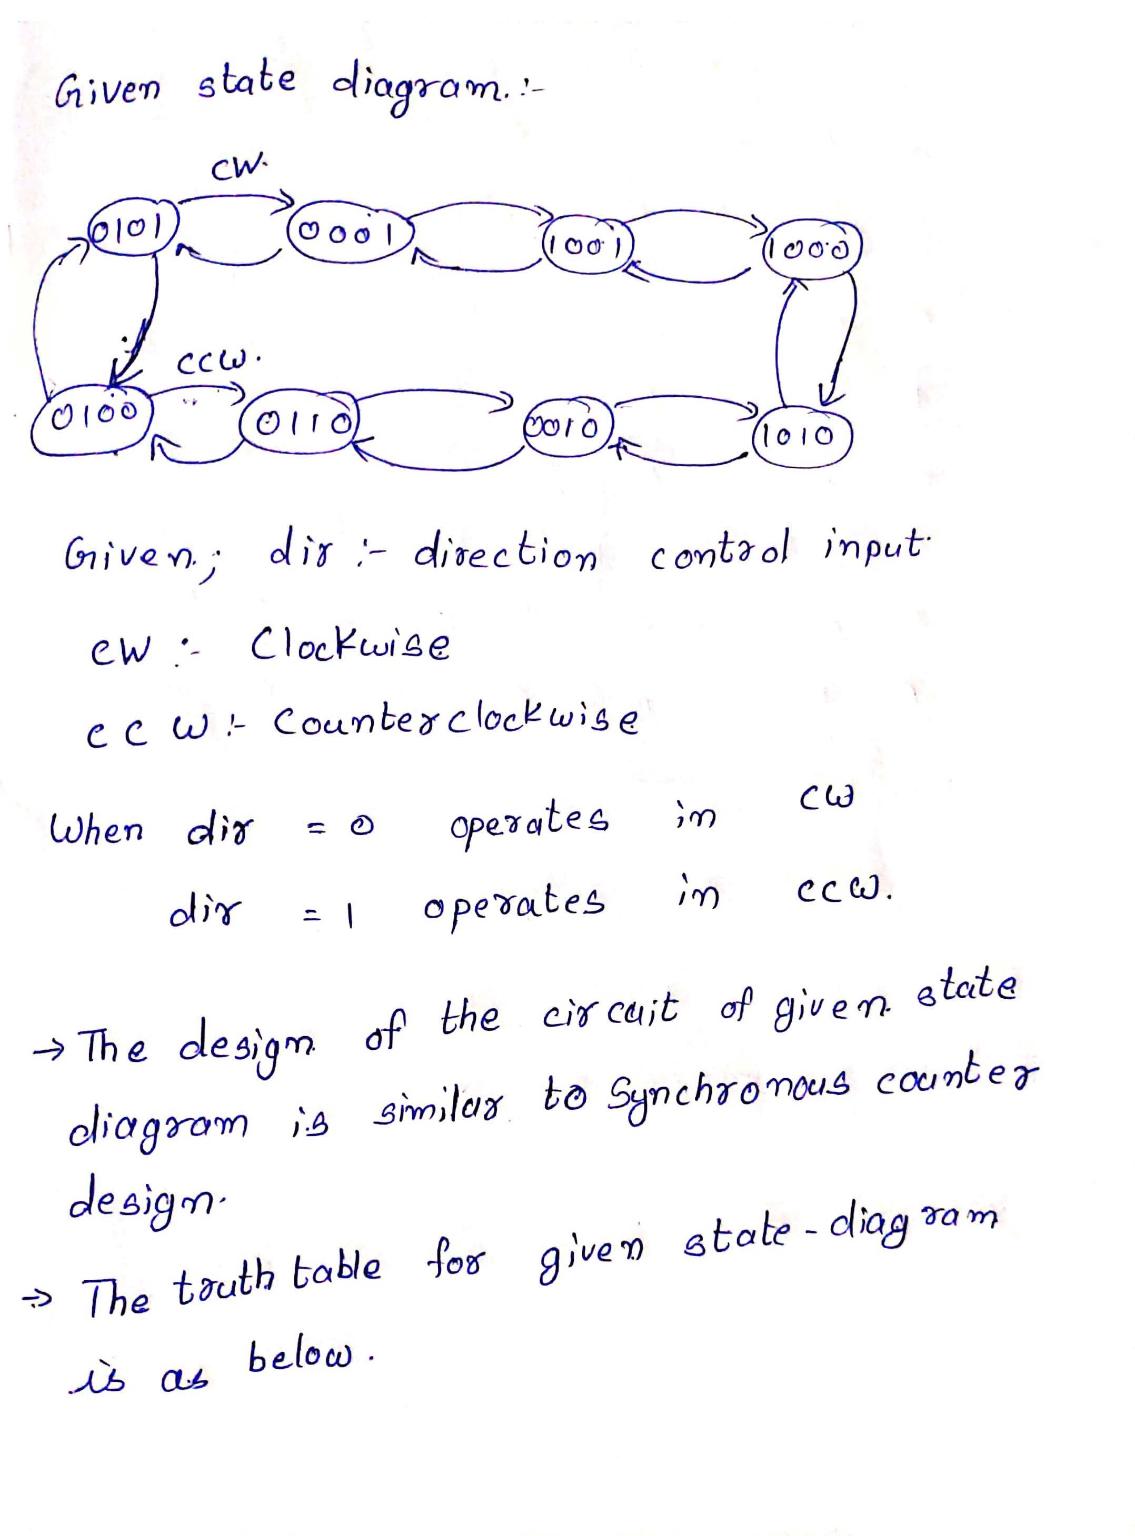 Given state diagram. :-
CW.
0101 0001 1001 1000
CCW.
0100 0110 0010 1010
Given; dir :- direction control input.
CW :- Clockwise
CCW :- Counterclockwise
When dir = 0 operates in CW
dir = 1 operates in CCW.
→ The design of the circuit of given state
diagram is similar to Synchronous counter
design.
→ The truth table for given state-diagram
is as below.